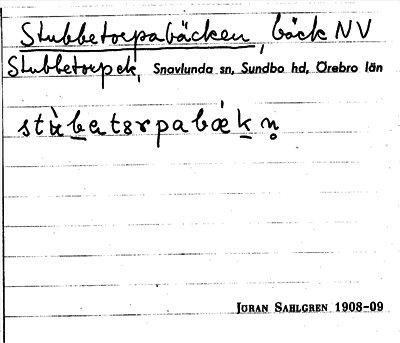 Stubbetorpabäcken, bäck NV
Stubbetorp ek, Snavlunda sn, Sundbo hd, Örebro län
stù̀b̲etɘrpabǽk̲n̥
JÖRAN SAHLGREN 1908-09